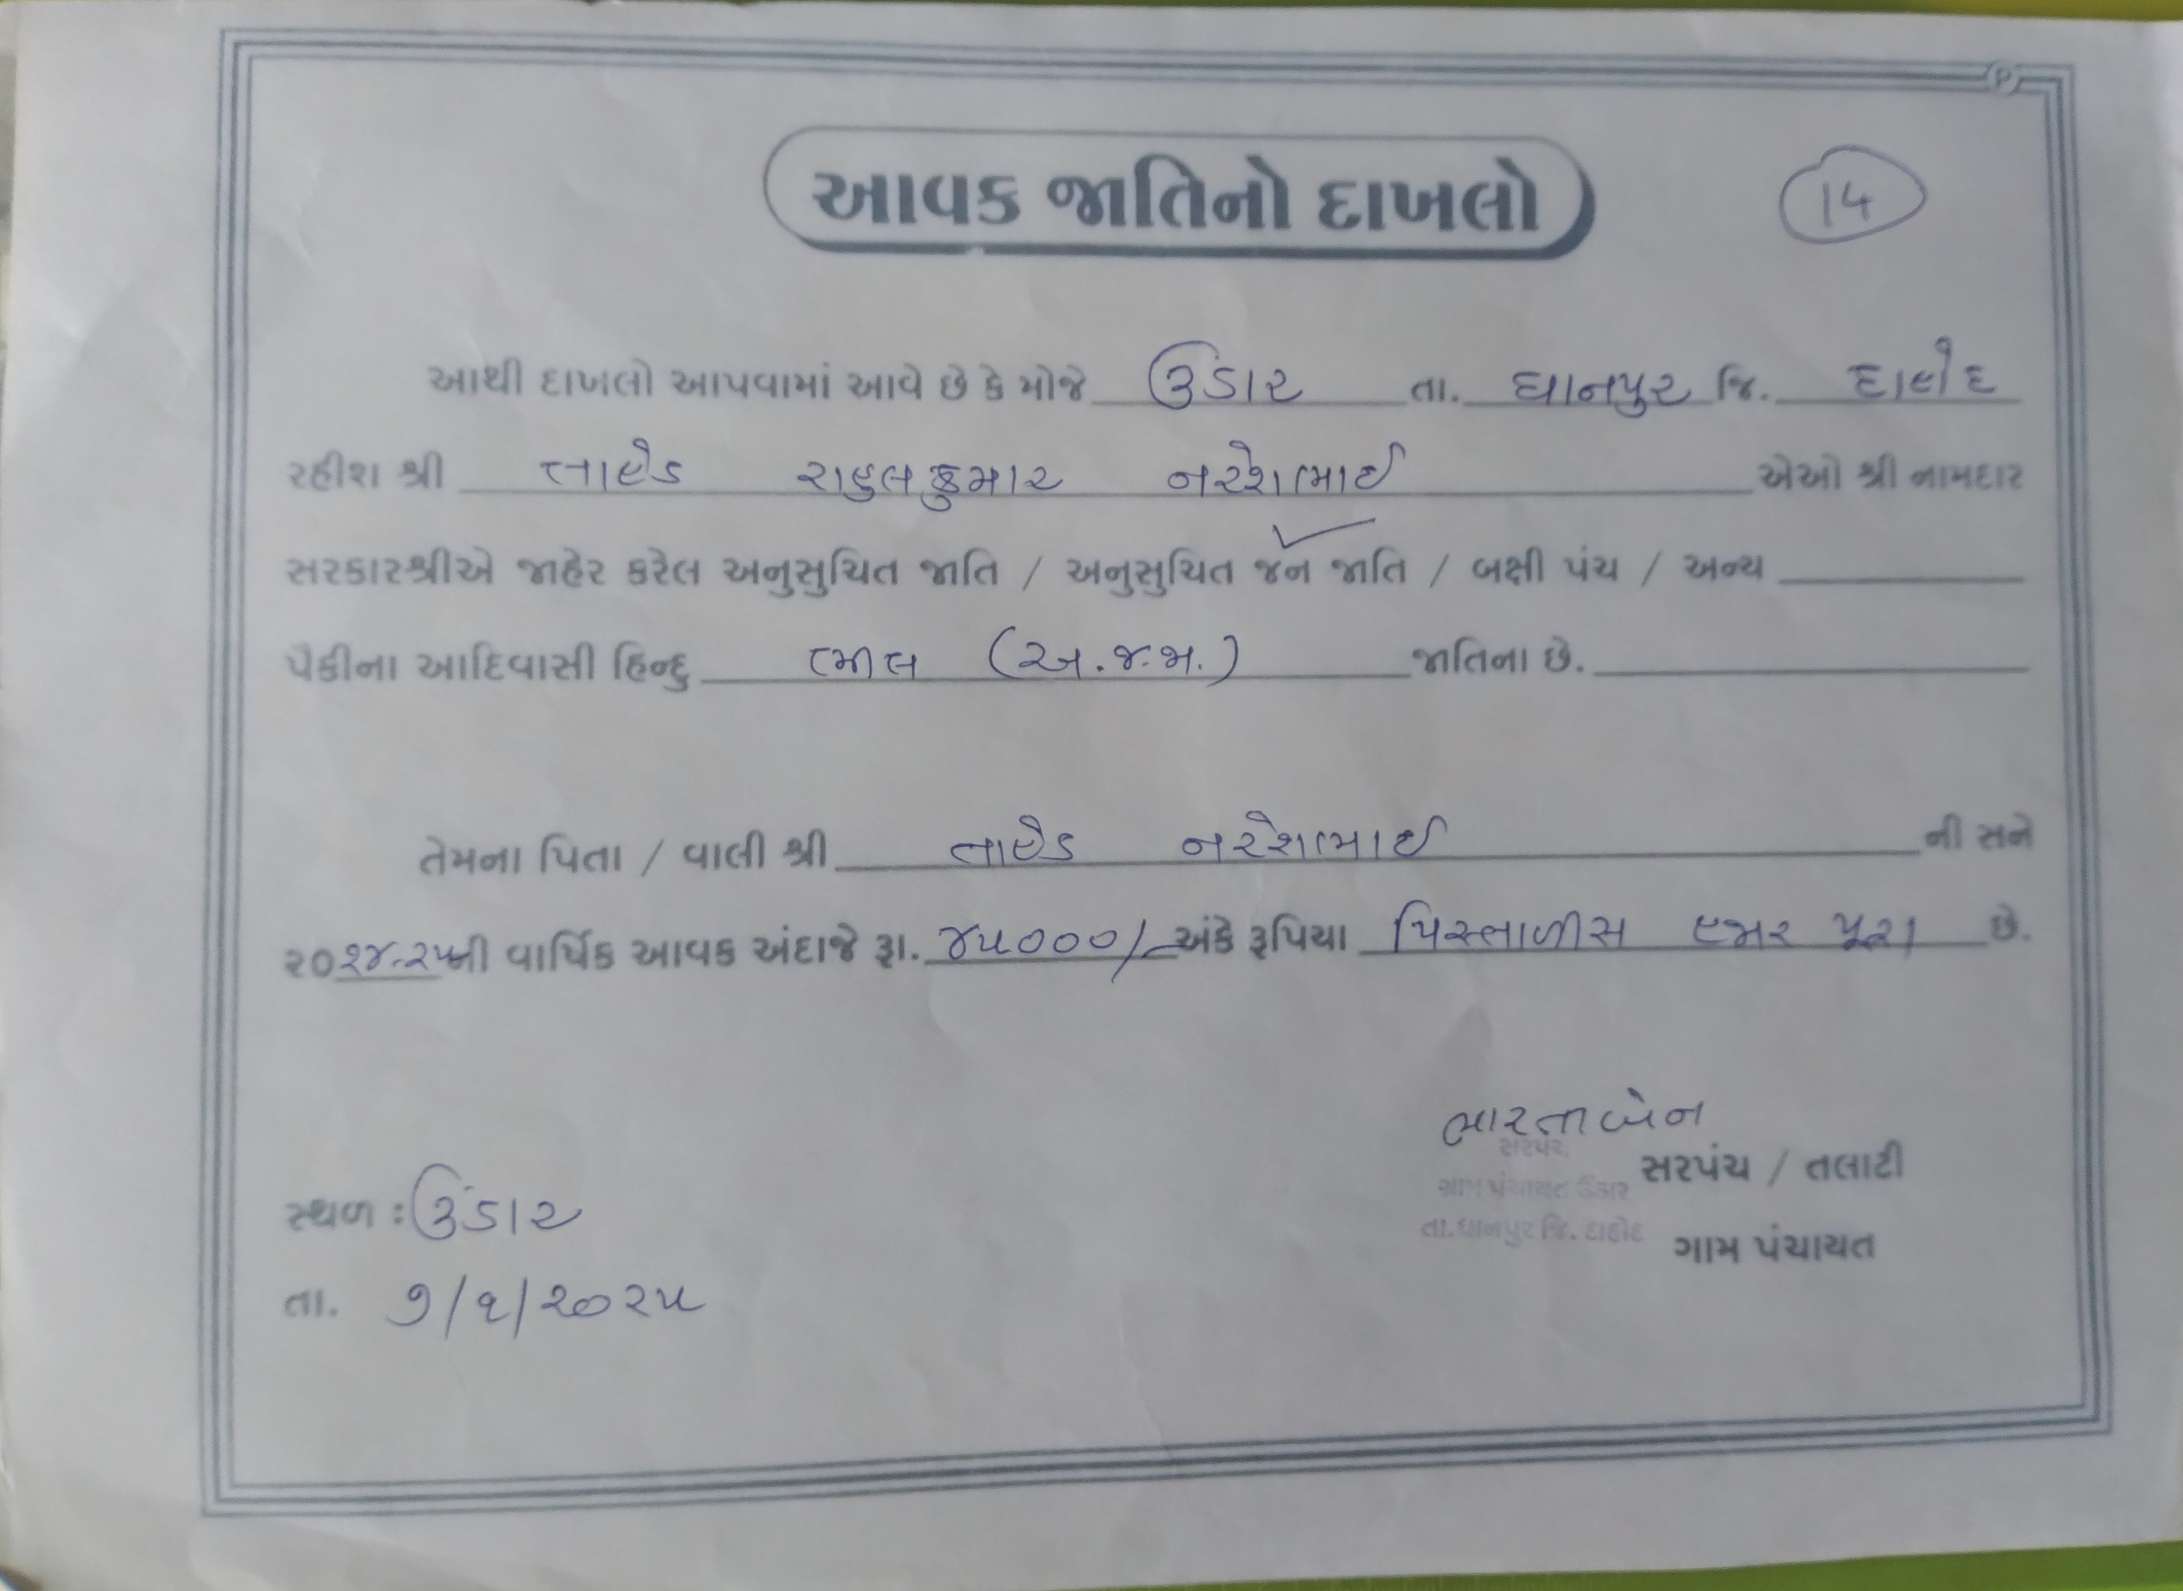 આવક જાતિનો દાખલો
14
આથી દાખલો આપવામાં આવે છે કે મોજે ઉંડાર તા. ધાનપુર જિ. દાહોદ
રહીશ શ્રી તાહેડ રાહુલકુમાર નરેશભાઈ એઓ શ્રી નામદાર
સરકારશ્રીએ જાહેર કરેલ અનુસુચિત જાતિ / અનુસુચિત જન જાતિ / બક્ષી પંચ / અન્ય
પૈકીના આદિવાસી હિન્દુ ભીલ (અ.જ.જા.) જાતિના છે.
તેમના પિતા / વાલી શ્રી તાહેડ નરેશભાઈ ની સને
૨૦૨૪-૨૫ની વાર્ષિક આવક અંદાજે રૂા. ૪૫૦૦૦/- અંકે રૂપિયા પિસ્તાળીસ હજાર પૂરા છે.
ભારતાબેન
સરપંચ
સરપંચ / તલાટી
ગ્રામ પંચાયત ઉંડાર
તા.ધાનપુર જિ. દાહોદ
ગામ પંચાયત
સ્થળ : ઉંડાર
તા. ૭/૧/૨૦૨૫